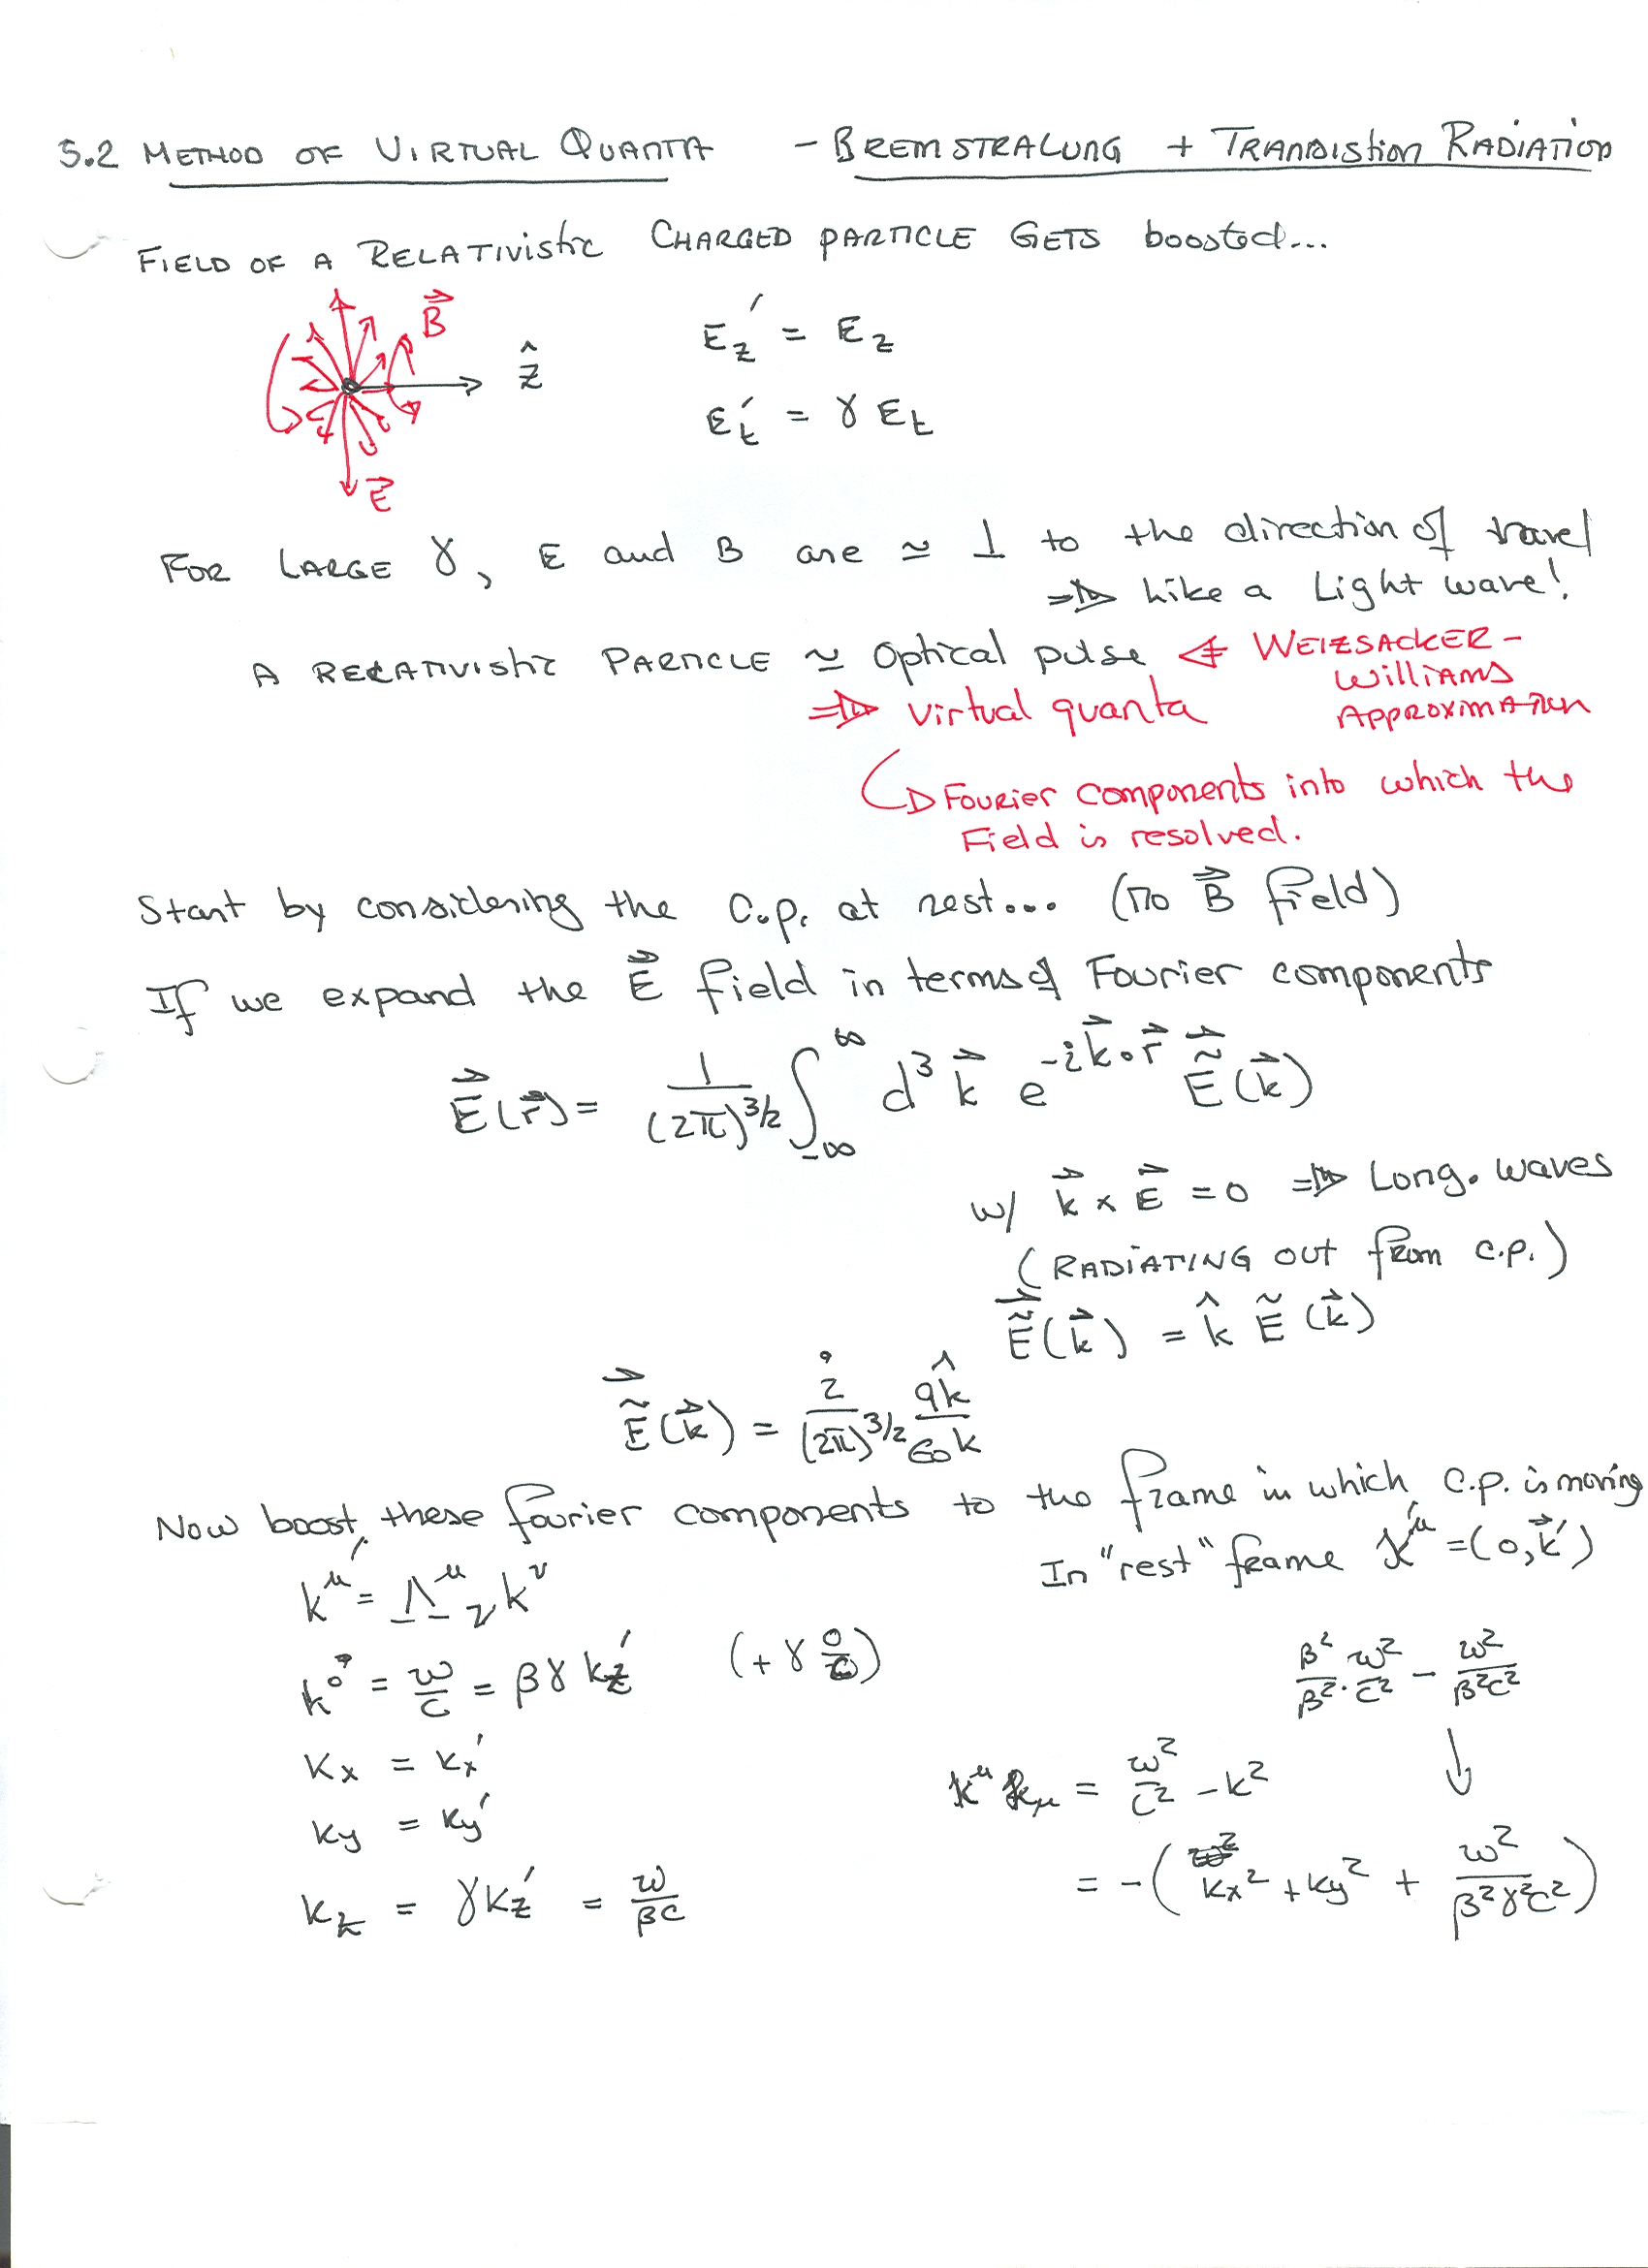 5.2 METHOD OF VIRTUAL QUANTA - BREMSTRALUNG + TRANDIStion RADIATION
FIELD OF A RELATIVIStic CHARGED PARTICLE GETS boosted...
B⃗
ẑ
E_z' = E_z
E_t' = γ E_t
E⃗
FOR LARGE γ, E and B are ≃ ⊥ to the direction of travel
⇒ Like a Light wave!
A RELATIVIStic PARTICLE ≃ Optical pulse ⇐ WEIZSACKER -
WilliAMS
APPROXIMATION
⇒ virtual quanta
↳ FOURIER components into which the
Field is resolved.
Start by considering the c.p. at rest... (no B⃗ field)
If we expand the E⃗ field in terms of Fourier components
E⃗(r⃗) = 1/(2π)^{3/2} ∫_{-∞}^{∞} d³k⃗ e^{-ik⃗·r⃗} Ẽ⃗(k⃗)
w/ k⃗ × E⃗ = 0 ⇒ Long. waves
(RADIATING OUT from c.p.)
Ẽ⃗(k⃗) = k̂ Ẽ(k⃗)
Ẽ⃗(k⃗) = i/(2π)^{3/2} qk̂/ε₀k
Now boost these fourier components to the frame in which c.p. is moving
In "rest" frame k'^μ = (0, k⃗')
k^μ' = Λ^μ_ν k^ν
k⁰ = ω/c = βγ k_z' (+ γ 0/c)
β²/β² · ω²/c² - ω²/β²c²
k_x = k_x'
k^μ k_μ = ω²/c² - k²
k_y = k_y'
= -(k_x² + k_y² + ω²/β²γ²c²)
k_z = γk_z' = ω/βc